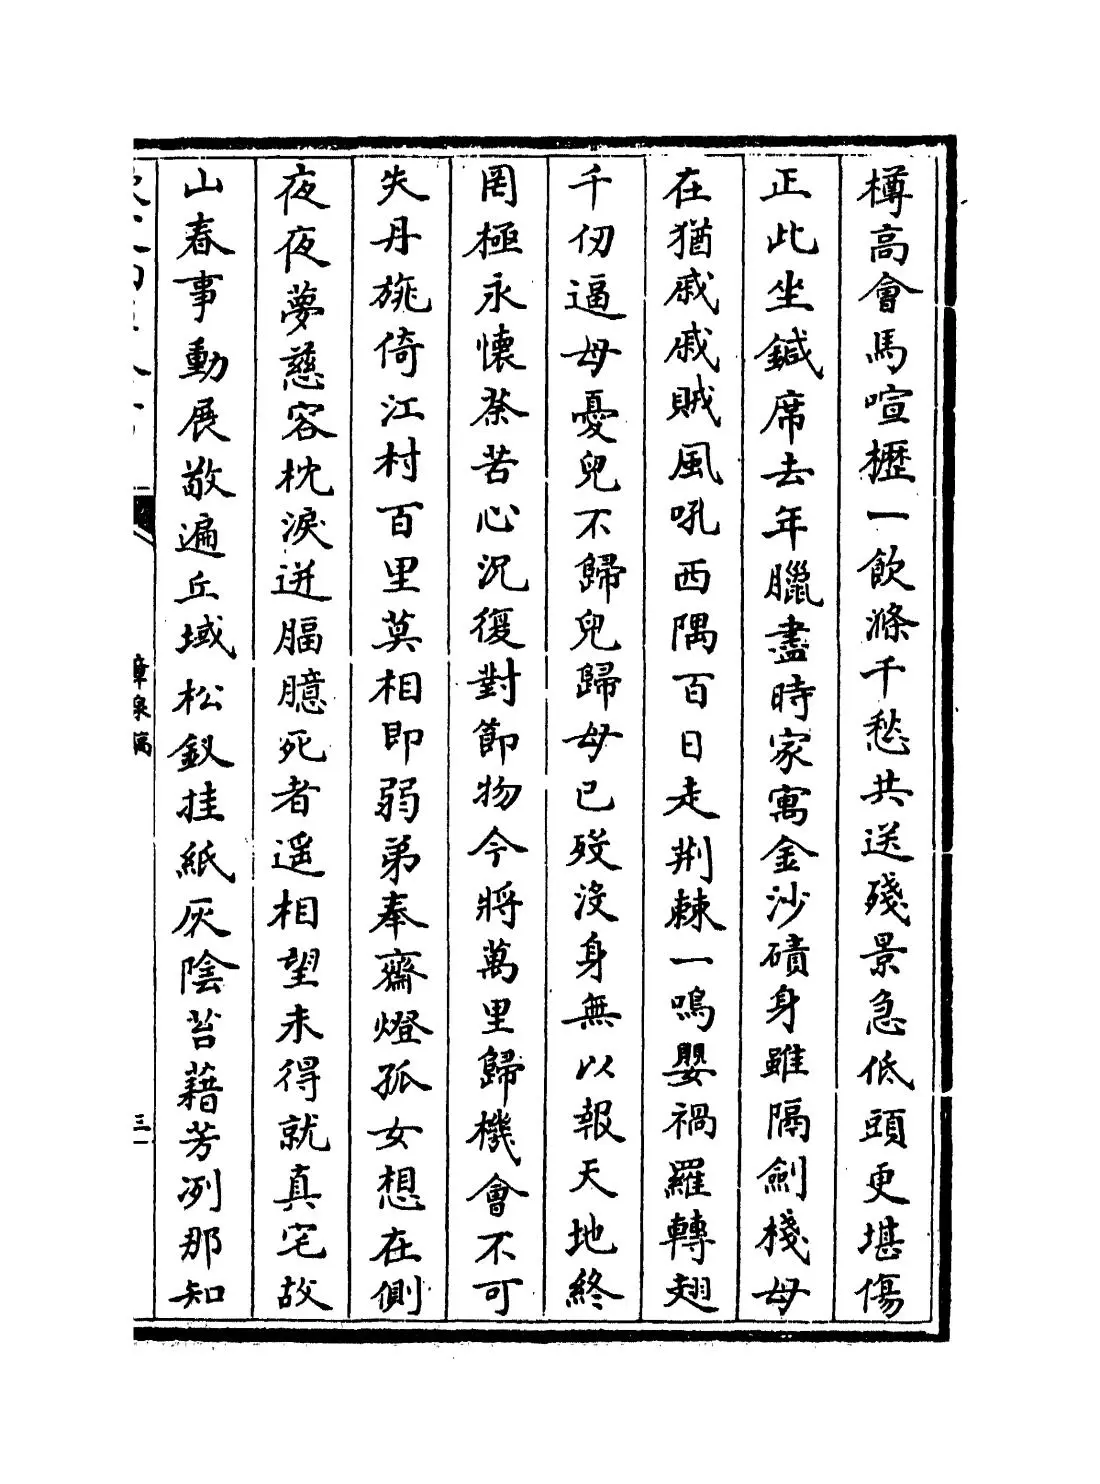 樽高會馬喧櫪一飲滌千愁共送殘景急低頭更堪傷
正此坐鍼席去年臘盡時家寓金沙磧身雖隔劍棧母
在猶戚戚賊風吼西隅百日走荆棘一鳴嬰禍羅轉翅
千仞逼母憂兒不歸兒歸母已歿沒身無以報天地終
罔極永懷荼苦心況復對節物今將萬里歸機會不可
失丹旐倚江村百里莫相即弱弟奉齋燈孤女想在側
夜夜夢慈容枕淚迸腷臆死者遥相望未得就真宅故
山春事動展敬遍丘域松釵挂紙灰陰苔藉芳冽那知
章泉稿
三